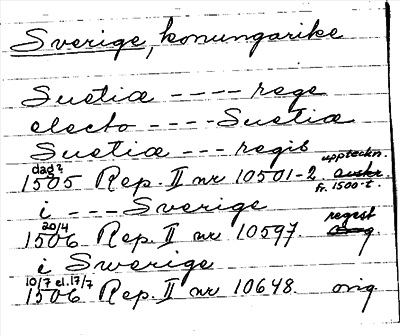 Sverige, konungarike
Suetiæ ---- rege
electo ---- Suetiæ
Suetiæ --- regis
dag? uppteckn.
1505 Rep. II nr 10501-2 avskr.
fr. 1500-t.
i --- Sverige
20/4 regest
1506 Rep. II nr 10597. orig
i Swerige
10/7 el. 17/7
1506 Rep. II nr 10648. orig